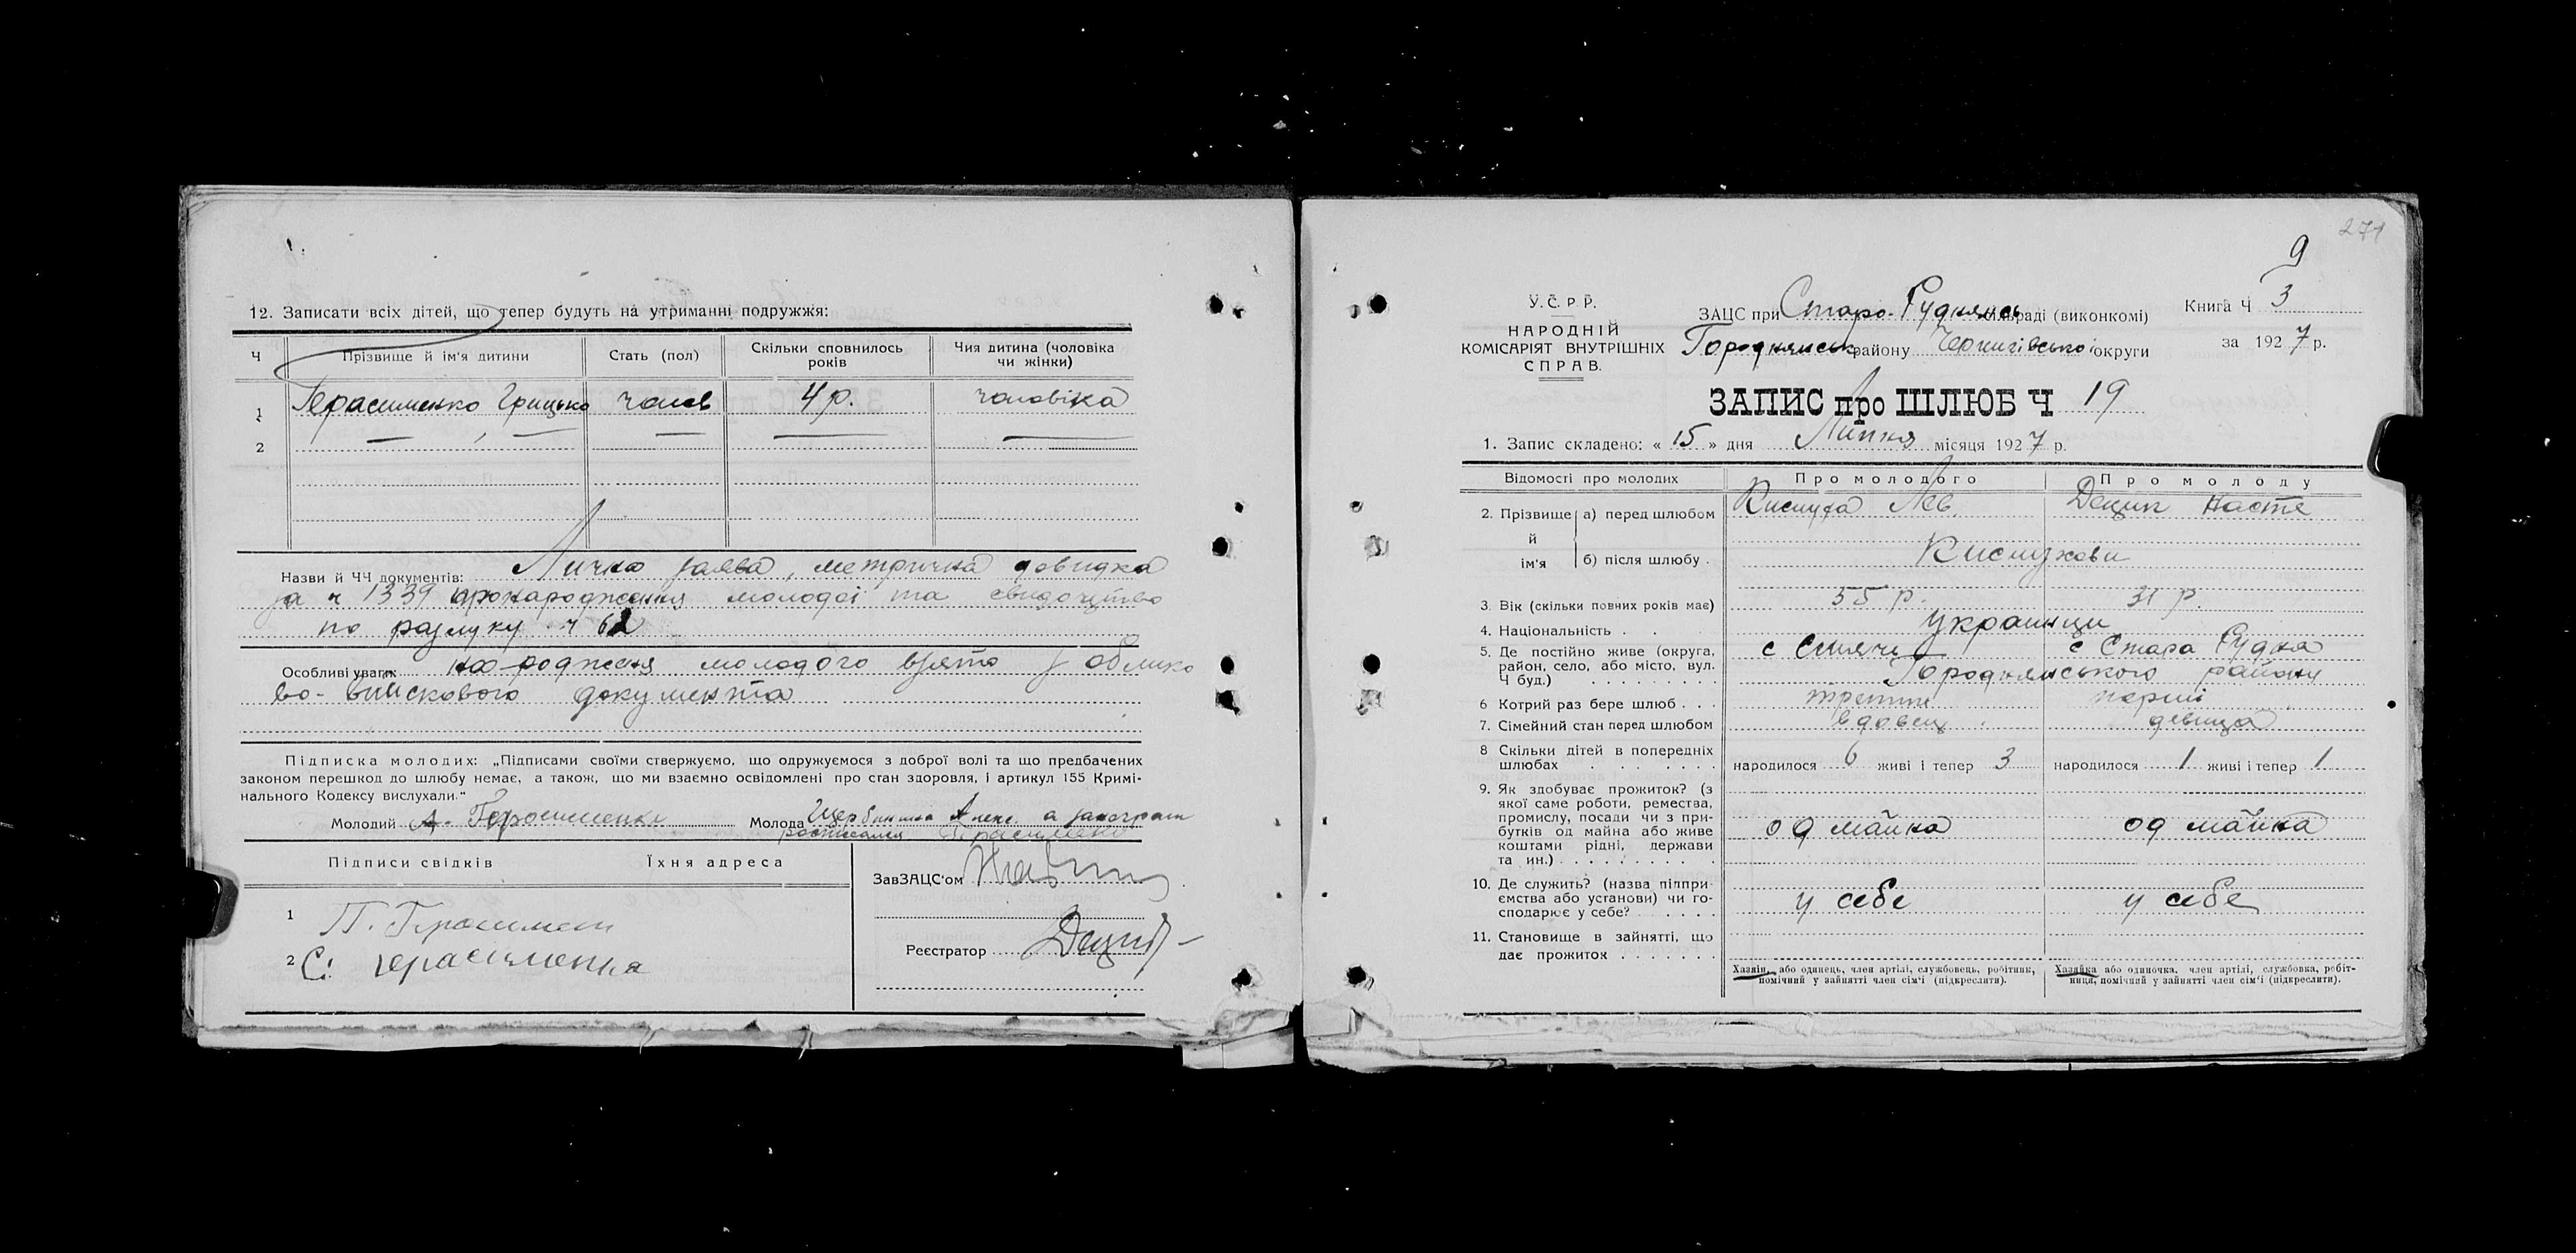 12. Записати всіх дітей, що тепер будуть на утриманні подружжя:
Ч Прізвище й ім'я дитини Стать (пол) Скільки сповнилось років Чия дитина (чоловіка чи жінки)
1 Герасименко Грицько чолов 4 р. чоловіка
2
Назви й ЧЧ документів: Лична заява, метрична довидка
за ч 1339 про народження молодої та свидоцтво
по розлуку ч 62
Особливі уваги: народження молодого взято з обліко
во-війскового документа
Підписка молодих: „Підписами своїми стверджуємо, що одружуємося з доброї волі та що предбачених
законом перешкод до шлюбу немає, а також, що ми взаємно освідомлені про стан здоровля, і артикул 155 Кримі-
нального Кодексу вислухали."
Молодий А. Герасименко Молода Щербинина Алекс. а заяеграт
росписался Герасименко
Підписи свідків Їхня адреса
ЗавЗАЦС'ом
1 П. Герасимен
Реєстратор Дециг
2 С. Герасименка
271
9
У.С.Р.Р.
НАРОДНІЙ
КОМІСАРІЯТ ВНУТРІШНІХ
СПРАВ.
ЗАЦС при Старо-Руднянсь сільраді (виконкомі)
Городнянськ району Чернигівської округи
Книга Ч 3
за 1927 р.
ЗАПИС про ШЛЮБ Ч 19
1. Запис складено: « 15 » дня Липня місяця 1927 р.
Відомості про молодих Про молодого Про молоду
2. Прізвище й ім'я а) перед шлюбом Кислуха Лев. Дециг Настя
б) після шлюбу . Кислухови
3. Вік (скільки повних років має) 55 р. 31 р.
4. Національність . . Украинци
5. Де постійно живе (округа, район, село, або місто, вул. Ч буд.) с Синяче с Стара Рудня
Городнянського району
6 Котрий раз бере шлюб . . . третій перший
7. Сімейний стан перед шлюбом вдовец девица
8 Скільки дітей в попередніх шлюбах народилося 6 живі і тепер 3 народилося 1 живі і тепер 1
9. Як здобуває прожиток? (з
якої саме роботи, ремества,
промислу, посади чи з при-
бутків од майна або живе
коштами рідні, держави
та ин.) од майна од майна
10. Де служить? (назва підпри-
ємства або установи) чи го-
сподарює у себе? у себе у себе
11. Становище в зайнятті, що
дає прожиток
Хазяїн, або одинець, член артілі, службовець, робітник,
помічний у зайнятті член сім'ї (підкреслити).
Хазяйка або одиночка, член артілі, службовка, робіт-
ниця, помічний у зайнятті член сім'ї (підкреслити).